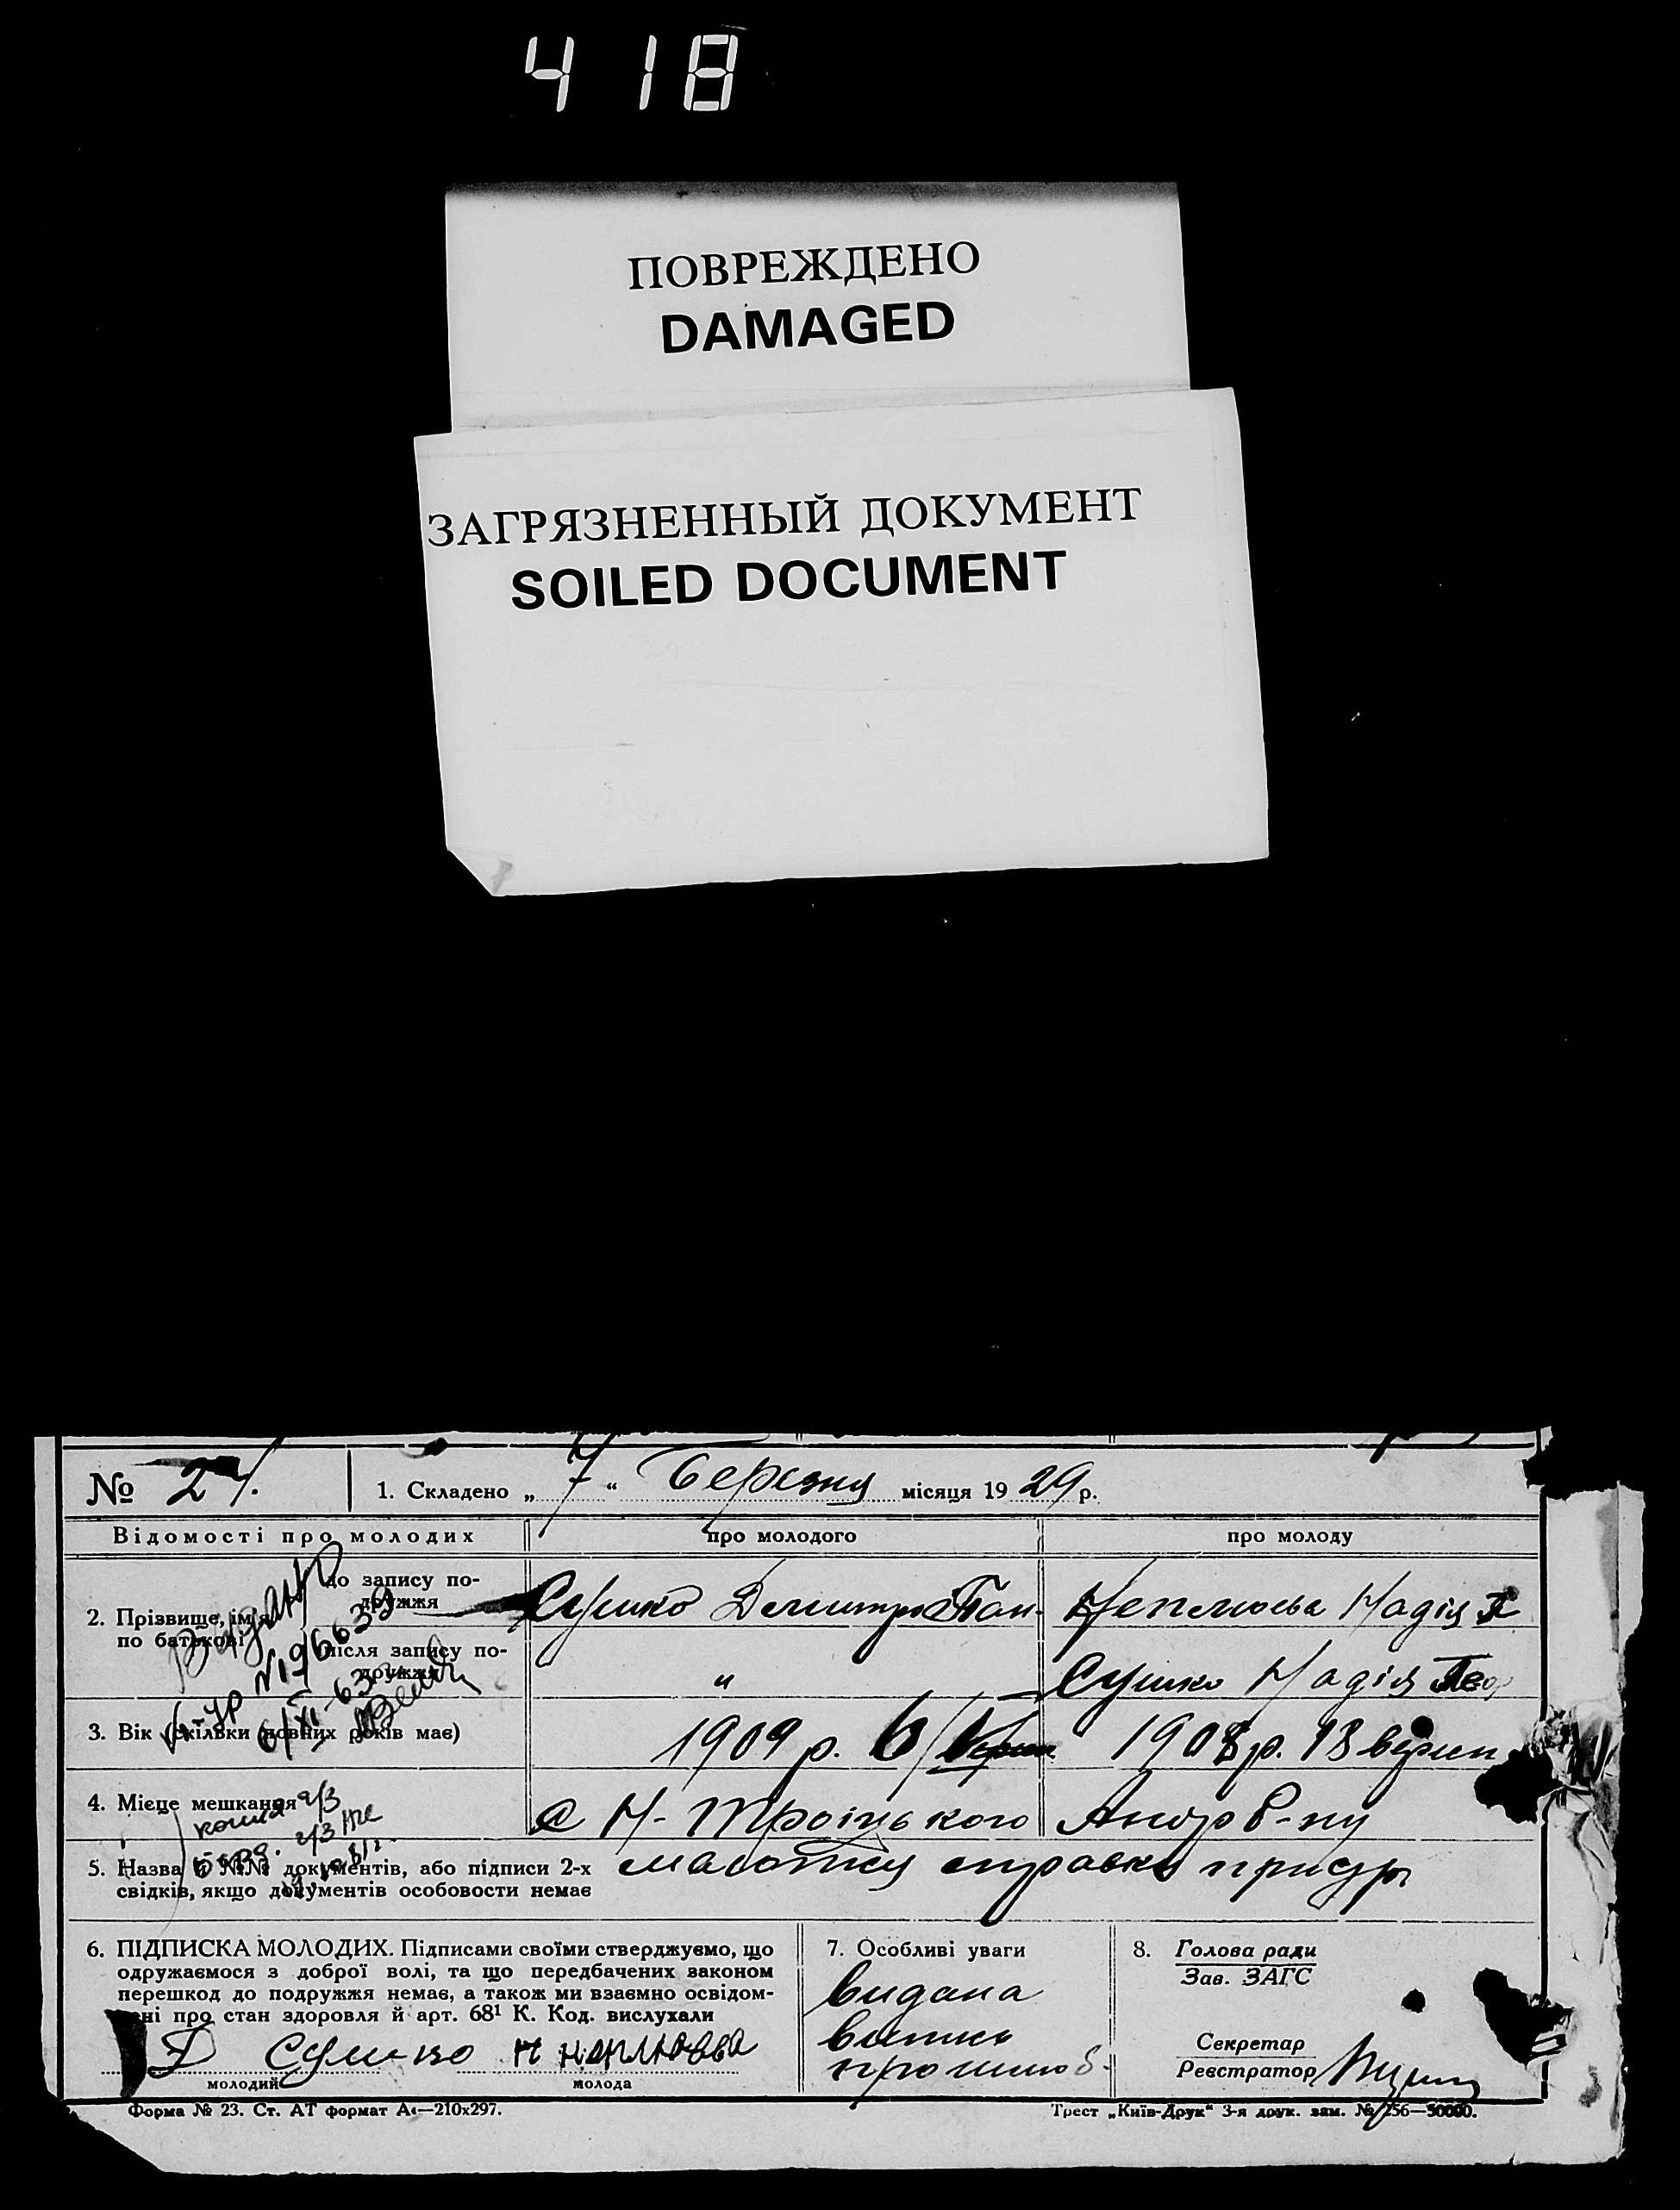 418
ПОВРЕЖДЕНО
DAMAGED
ЗАГРЯЗНЕННЫЙ ДОКУМЕНТ
SOILED DOCUMENT
№ 27. 1. Складено „ 7 “ березня місяця 19 29 р.
Відомості про молодих про молодого про молоду
2. Прізвище, ім'я по батькові
до запису подружжя Сушко Демитро Пан- Неплюєва Надія
після запису подружжя " Сушко Надія
3. Вік (скільки повних років має) 1909 р. 6/ 1908 р. 13 версн
4. Місце мешкання с Н-Троіцького Андр Р-ну
5. Назва й №№ документів, або підписи 2-х
свідків, якщо документів особовости немає
Видано
№ 196639
6/XI-63
копия
6. ПІДПИСКА МОЛОДИХ. Підписами своїми стверджуємо, що
одружаємося з доброї волі, та що передбачених законом
перешкод до подружжя немає, а також ми взаємно освідом-
ені про стан здоровля й арт. 68¹ К. Код. вислухали
Д Сушко Н Неплюєва
молодий молода
7. Особливі уваги
видана
випись
про шлюб-
8. Голова ради
Зав. ЗАГС
Секретар
Реєстратор
Форма № 23. Ст. АТ формат А₄—210x297.
Трест „Київ-Друк“ 3-я друк. зам. № 256—50000.